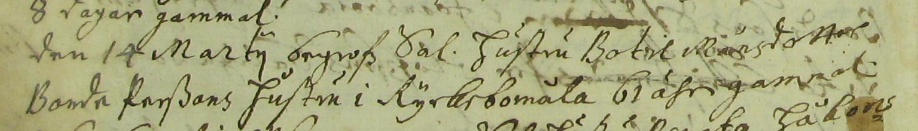 8 dagar gammal.
den 14 Martij begrofs Sal. Hustru Botil Månsdotter
Bonde Perssons Hustru i Ryekebomåla 61 åhr gammal.
Håkons